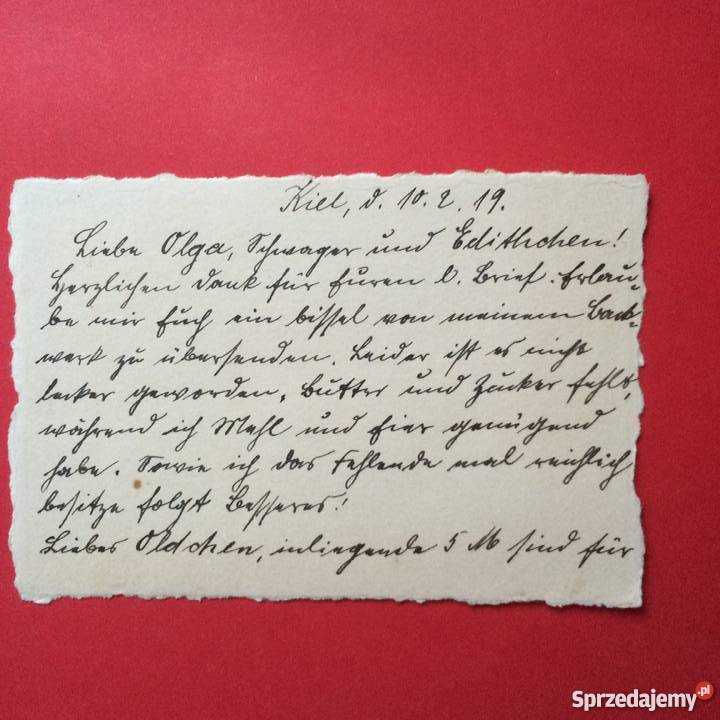 Kiel, d. 10.2.19.
Liebe Olga, Schwager und Edithchen!
Herzlichen Dank für Euren l. Brief. Erlau-
be mir Euch ein bissel von meinem Back-
werk zu übersenden. Leider ist es nicht
lecker geworden, Butter und Zucker fehlt,
während ich Mehl und Eier genügend
habe. Sowie ich das Fehlende mal reichlich
besitze folgt Besseres!
Liebes Oldchen, inliegende 5 M sind für
Sprzedajemy.pl